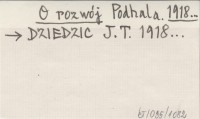 O rozwój Podhala. 1918...
→ DZIEDZIC J.T. 1918...